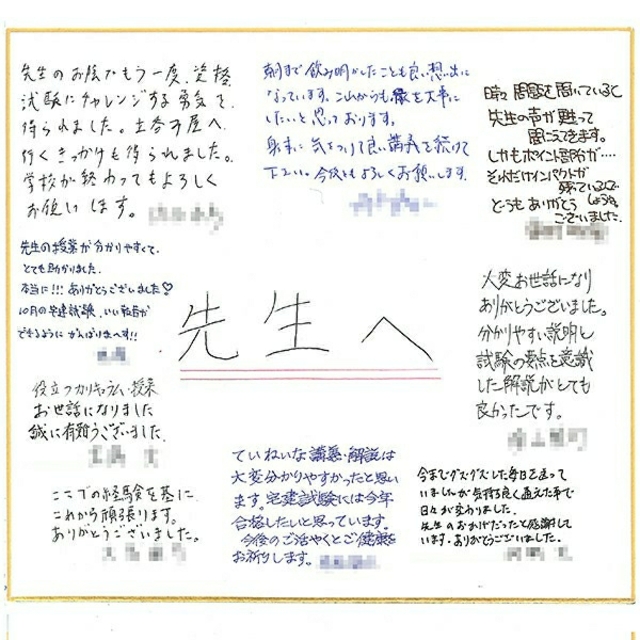 先生のお陰でもう一度、資格
試験にチャレンジする勇気を
得られました。土谷方屋へ
行くきっかけも得られました。
学校が終わってもよろしく
お願いします。
朝まで飲み明かしたことも良い想い出に
なっています。これからも縁を大事に
したいと思っております。
身体に気をつけて良い講義を続けて
下さい。今後ともよろしくお願いします。
時々問題を解いていると
先生の声が甦って
聞こえてきます。
しかもポイント部分が…
それだけインパクトが
残っているんで
しょうね。
どうもありがとう
ございました。
先生の授業が分かりやすくて、
とても助かりました。
本当に!!!ありがとうございました♡
10月の宅建試験、いい報告が
できるようにがんばりまーす!!
先生へ
大変お世話になり
ありがとうございました。
分かりやすい説明と
試験の要点を意識
した解説がとても
良かったです。
役立つカリキュラム・授業
お世話になりました
誠に有難うございました。
ここでの経験を基に
これから頑張ります。
ありがとうございました。
ていねいな講義・解説は
大変分かりやすかったと思い
ます。宅建試験には今年
合格したいと思っています。
今後のご活やくとご健康を
お祈りします。
今までグズグズした毎日を送って
いましたが気持ち良く通えた事で
日々が変わりました。
先生のおかげだったと感謝して
います。ありがとうございました。